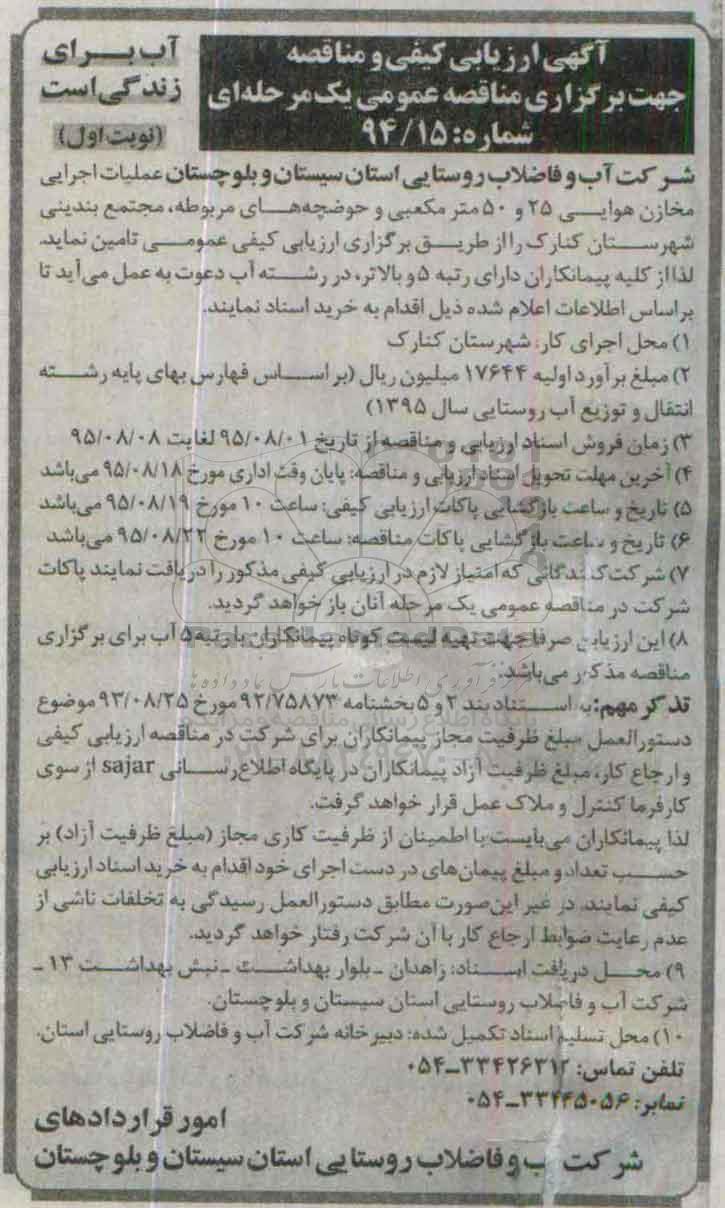 آگهی ارزیابی کیفی و مناقصه
جهت برگزاری مناقصه عمومی یک مرحله‌ای
شماره: ۹۴/۱۵
آب بــرای
زندگی است
(نوبت اول)
شرکت آب و فاضلاب روستایی استان سیستان و بلوچستان عملیات اجرایی
مخازن هوایی ۲۵ و ۵۰ متر مکعبی و حوضچه‌های مربوطه، مجتمع بندینی
شهرستان کنارک را از طریق برگزاری ارزیابی کیفی عمومی تامین نماید.
لذا از کلیه پیمانکاران دارای رتبه ۵ و بالاتر، در رشته آب دعوت به عمل می‌آید تا
براساس اطلاعات اعلام شده ذیل اقدام به خرید اسناد نمایند.
۱) محل اجرای کار: شهرستان کنارک
۲) مبلغ برآورد اولیه ۱۷۶۴۴ میلیون ریال (بر اساس فهارس بهای پایه رشته
انتقال و توزیع آب روستایی سال ۱۳۹۵)
۳) زمان فروش اسناد ارزیابی و مناقصه از تاریخ ۹۵/۰۸/۰۱ لغایت ۹۵/۰۸/۰۸
۴) آخرین مهلت تحویل اسناد ارزیابی و مناقصه: پایان وقت اداری مورخ ۹۵/۰۸/۱۸ می‌باشد
۵) تاریخ و ساعت بازگشایی پاکات ارزیابی کیفی: ساعت ۱۰ مورخ ۹۵/۰۸/۱۹ می‌باشد
۶) تاریخ و ساعت بازگشایی پاکات مناقصه: ساعت ۱۰ مورخ ۹۵/۰۸/۲۲ می‌باشد
۷) شرکت‌کنندگانی که امتیاز لازم در ارزیابی کیفی مذکور را دریافت نمایند پاکات
شرکت در مناقصه عمومی یک مرحله آنان باز خواهد گردید.
۸) این ارزیابی صرفا جهت تهیه لیست کوتاه پیمانکاران با رتبه ۵ آب برای برگزاری
مناقصه مذکور می‌باشد.
تذکر مهم: به استناد بند ۲ و ۵ بخشنامه ۹۲/۷۵۸۷۳ مورخ ۹۳/۰۸/۲۵ موضوع
دستورالعمل مبلغ ظرفیت مجاز پیمانکاران برای شرکت در مناقصه ارزیابی کیفی
و ارجاع کار، مبلغ ظرفیت آزاد پیمانکاران در پایگاه اطلاع‌رسانی sajar از سوی
کارفرما کنترل و ملاک عمل قرار خواهد گرفت.
لذا پیمانکاران می‌بایست با اطمینان از ظرفیت کاری مجاز (مبلغ ظرفیت آزاد) بر
حسب تعداد و مبلغ پیمان‌های در دست اجرای خود اقدام به خرید اسناد ارزیابی
کیفی نمایند. در غیر این‌صورت مطابق دستورالعمل رسیدگی به تخلفات ناشی از
عدم رعایت ضوابط ارجاع کار با آن شرکت رفتار خواهد گردید.
۹) محل دریافت اسناد: زاهدان ـ بلوار بهداشت ـ نبش بهداشت ۱۳ ـ
شرکت آب و فاضلاب روستایی استان سیستان و بلوچستان.
۱۰) محل تسلیم اسناد تکمیل شده: دبیرخانه شرکت آب و فاضلاب روستایی استان.
تلفن تماس: ۳۳۴۲۶۳۱۲ـ۰۵۴
نمابر: ۳۳۴۴۵۰۵۶ـ۰۵۴
امور قراردادهای
شرکت آب و فاضلاب روستایی استان سیستان و بلوچستان